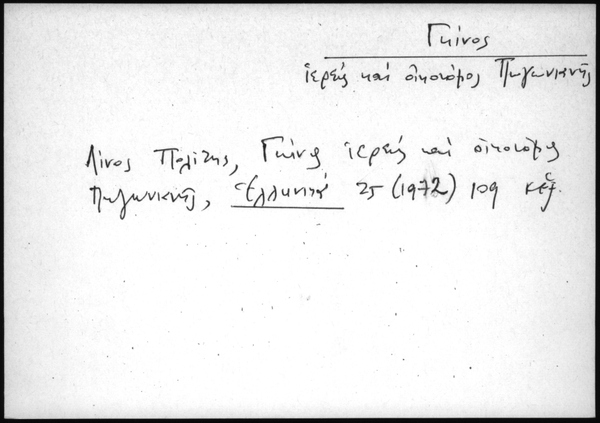 Γκίνος
ἱερεὺς καὶ οἰκονόμος Πωγωνιανῆς
Λίνος Πολίτης, Γκίνος ἱερεὺς καὶ οἰκονόμος
Πωγωνιανῆς, Ἑλληνικά 25 (1972) 109 κἑξ.